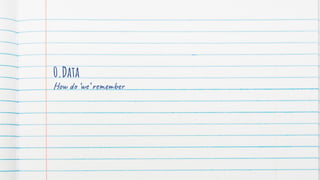 0.Data
How do 'we' remember